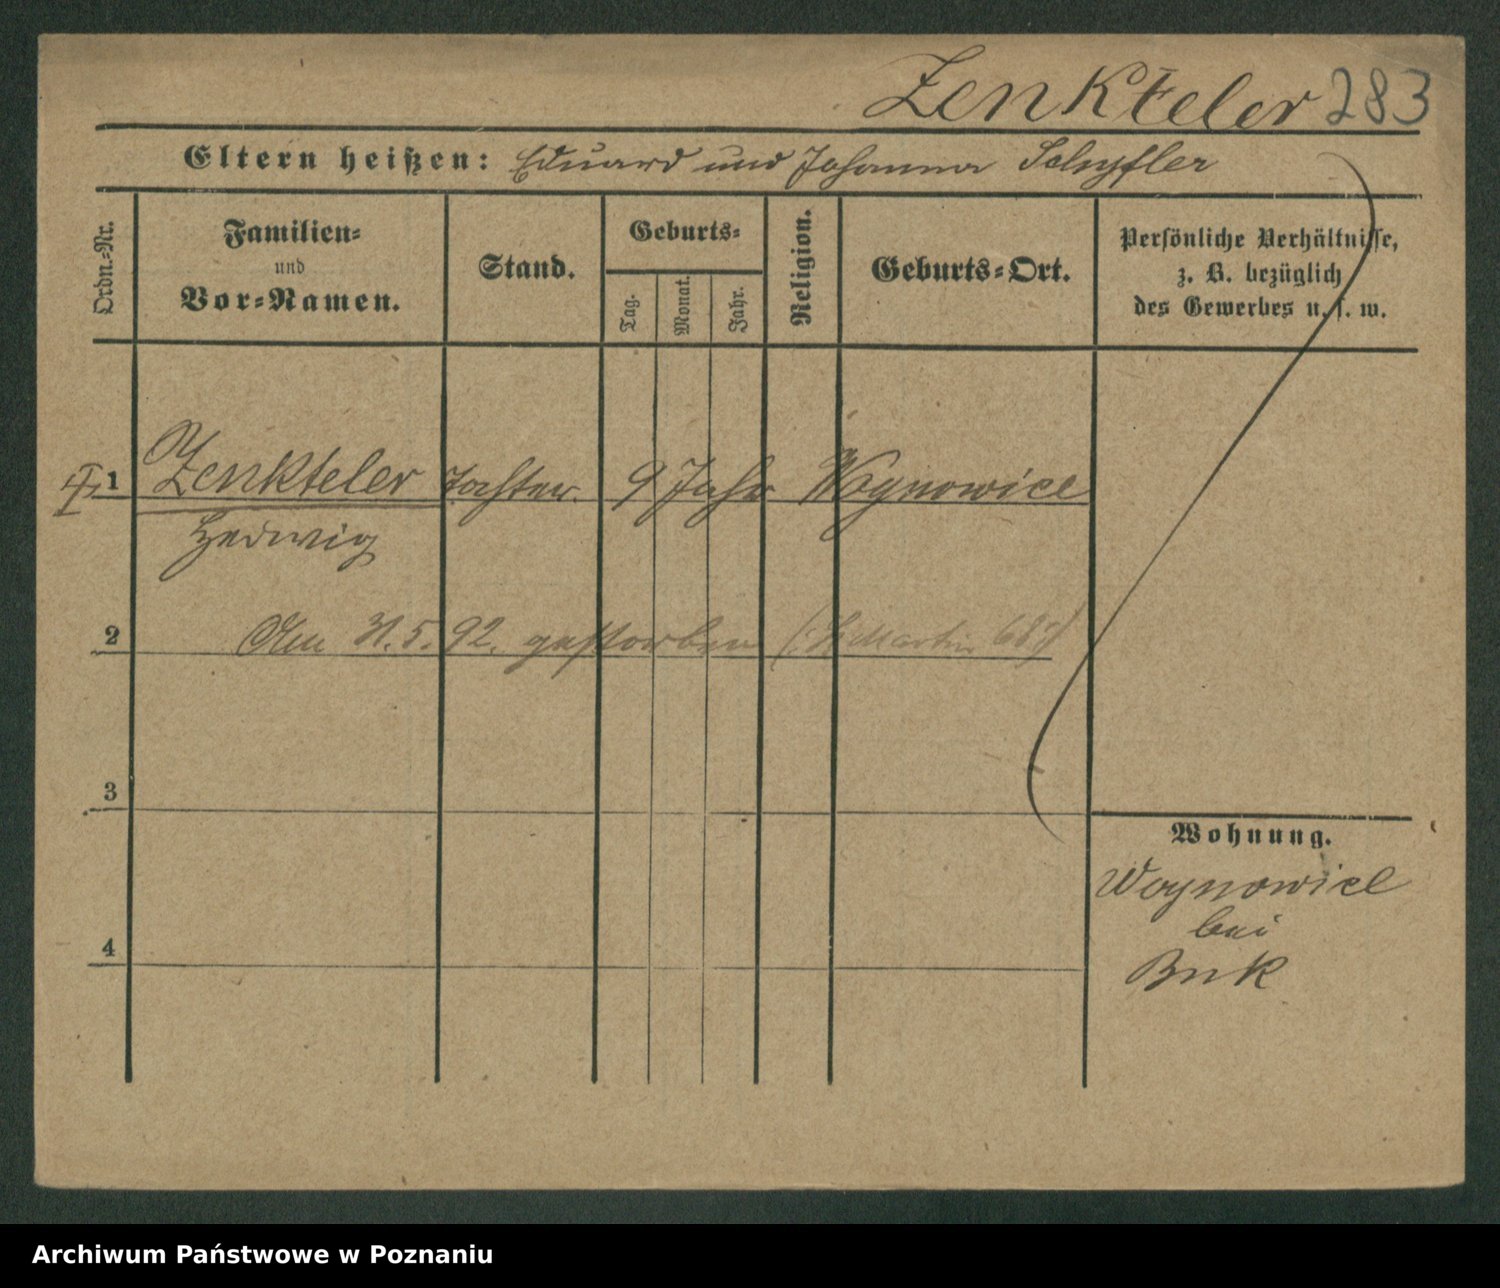 Zenkteler 283
Eltern heißen: Eduard und Johanna
Ordn.-Nr.
Familien-
und
Vor-Namen.
Stand.
Geburts-
Tag.
Monat.
Jahr.
Religion.
Geburts-Ort.
Persönliche Verhältnisse,
z. B. bezüglich
des Gewerbes u. s. w.
1 Zenkteler Tochter. 9 Jahr Woynowice
Hedwig
2 Am 31.5.92. gestorben
3
Wohnung.
Woynowice
bei
Buk
4
Archiwum Państwowe w Poznaniu